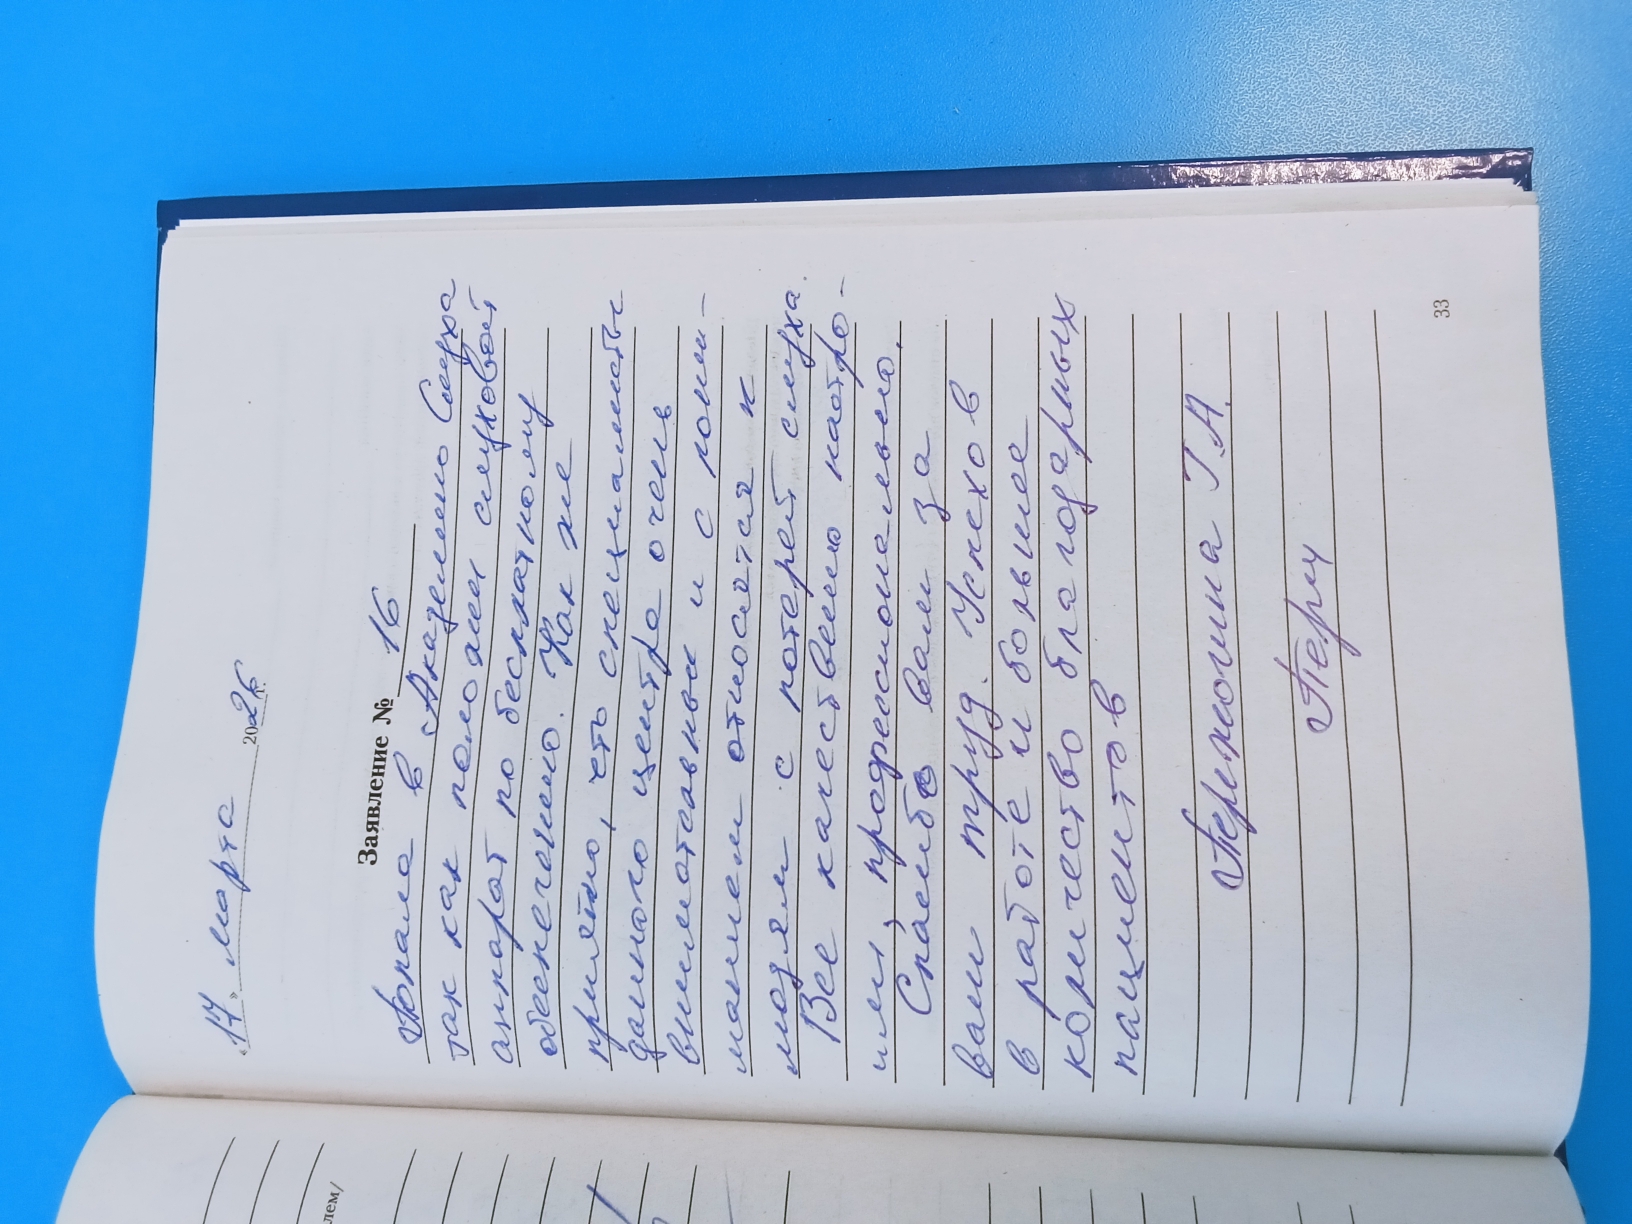 «17» марта 2026 г.
Заявление № 16
Попала в Академию Слуха
так как положен слуховой
аппарат по бесплатному
обеспечению. Как же
приятно, что специалисты
данного центра очень
внимательны и с пони-
манием относятся к
людям с потерей слуха.
Все качественно настро-
или, профессионально.
Спасибо вам за
ваш труд. Успехов
в работе и больше
количество благодарных
пациентов
Пермогина Т.А.
33
лем/